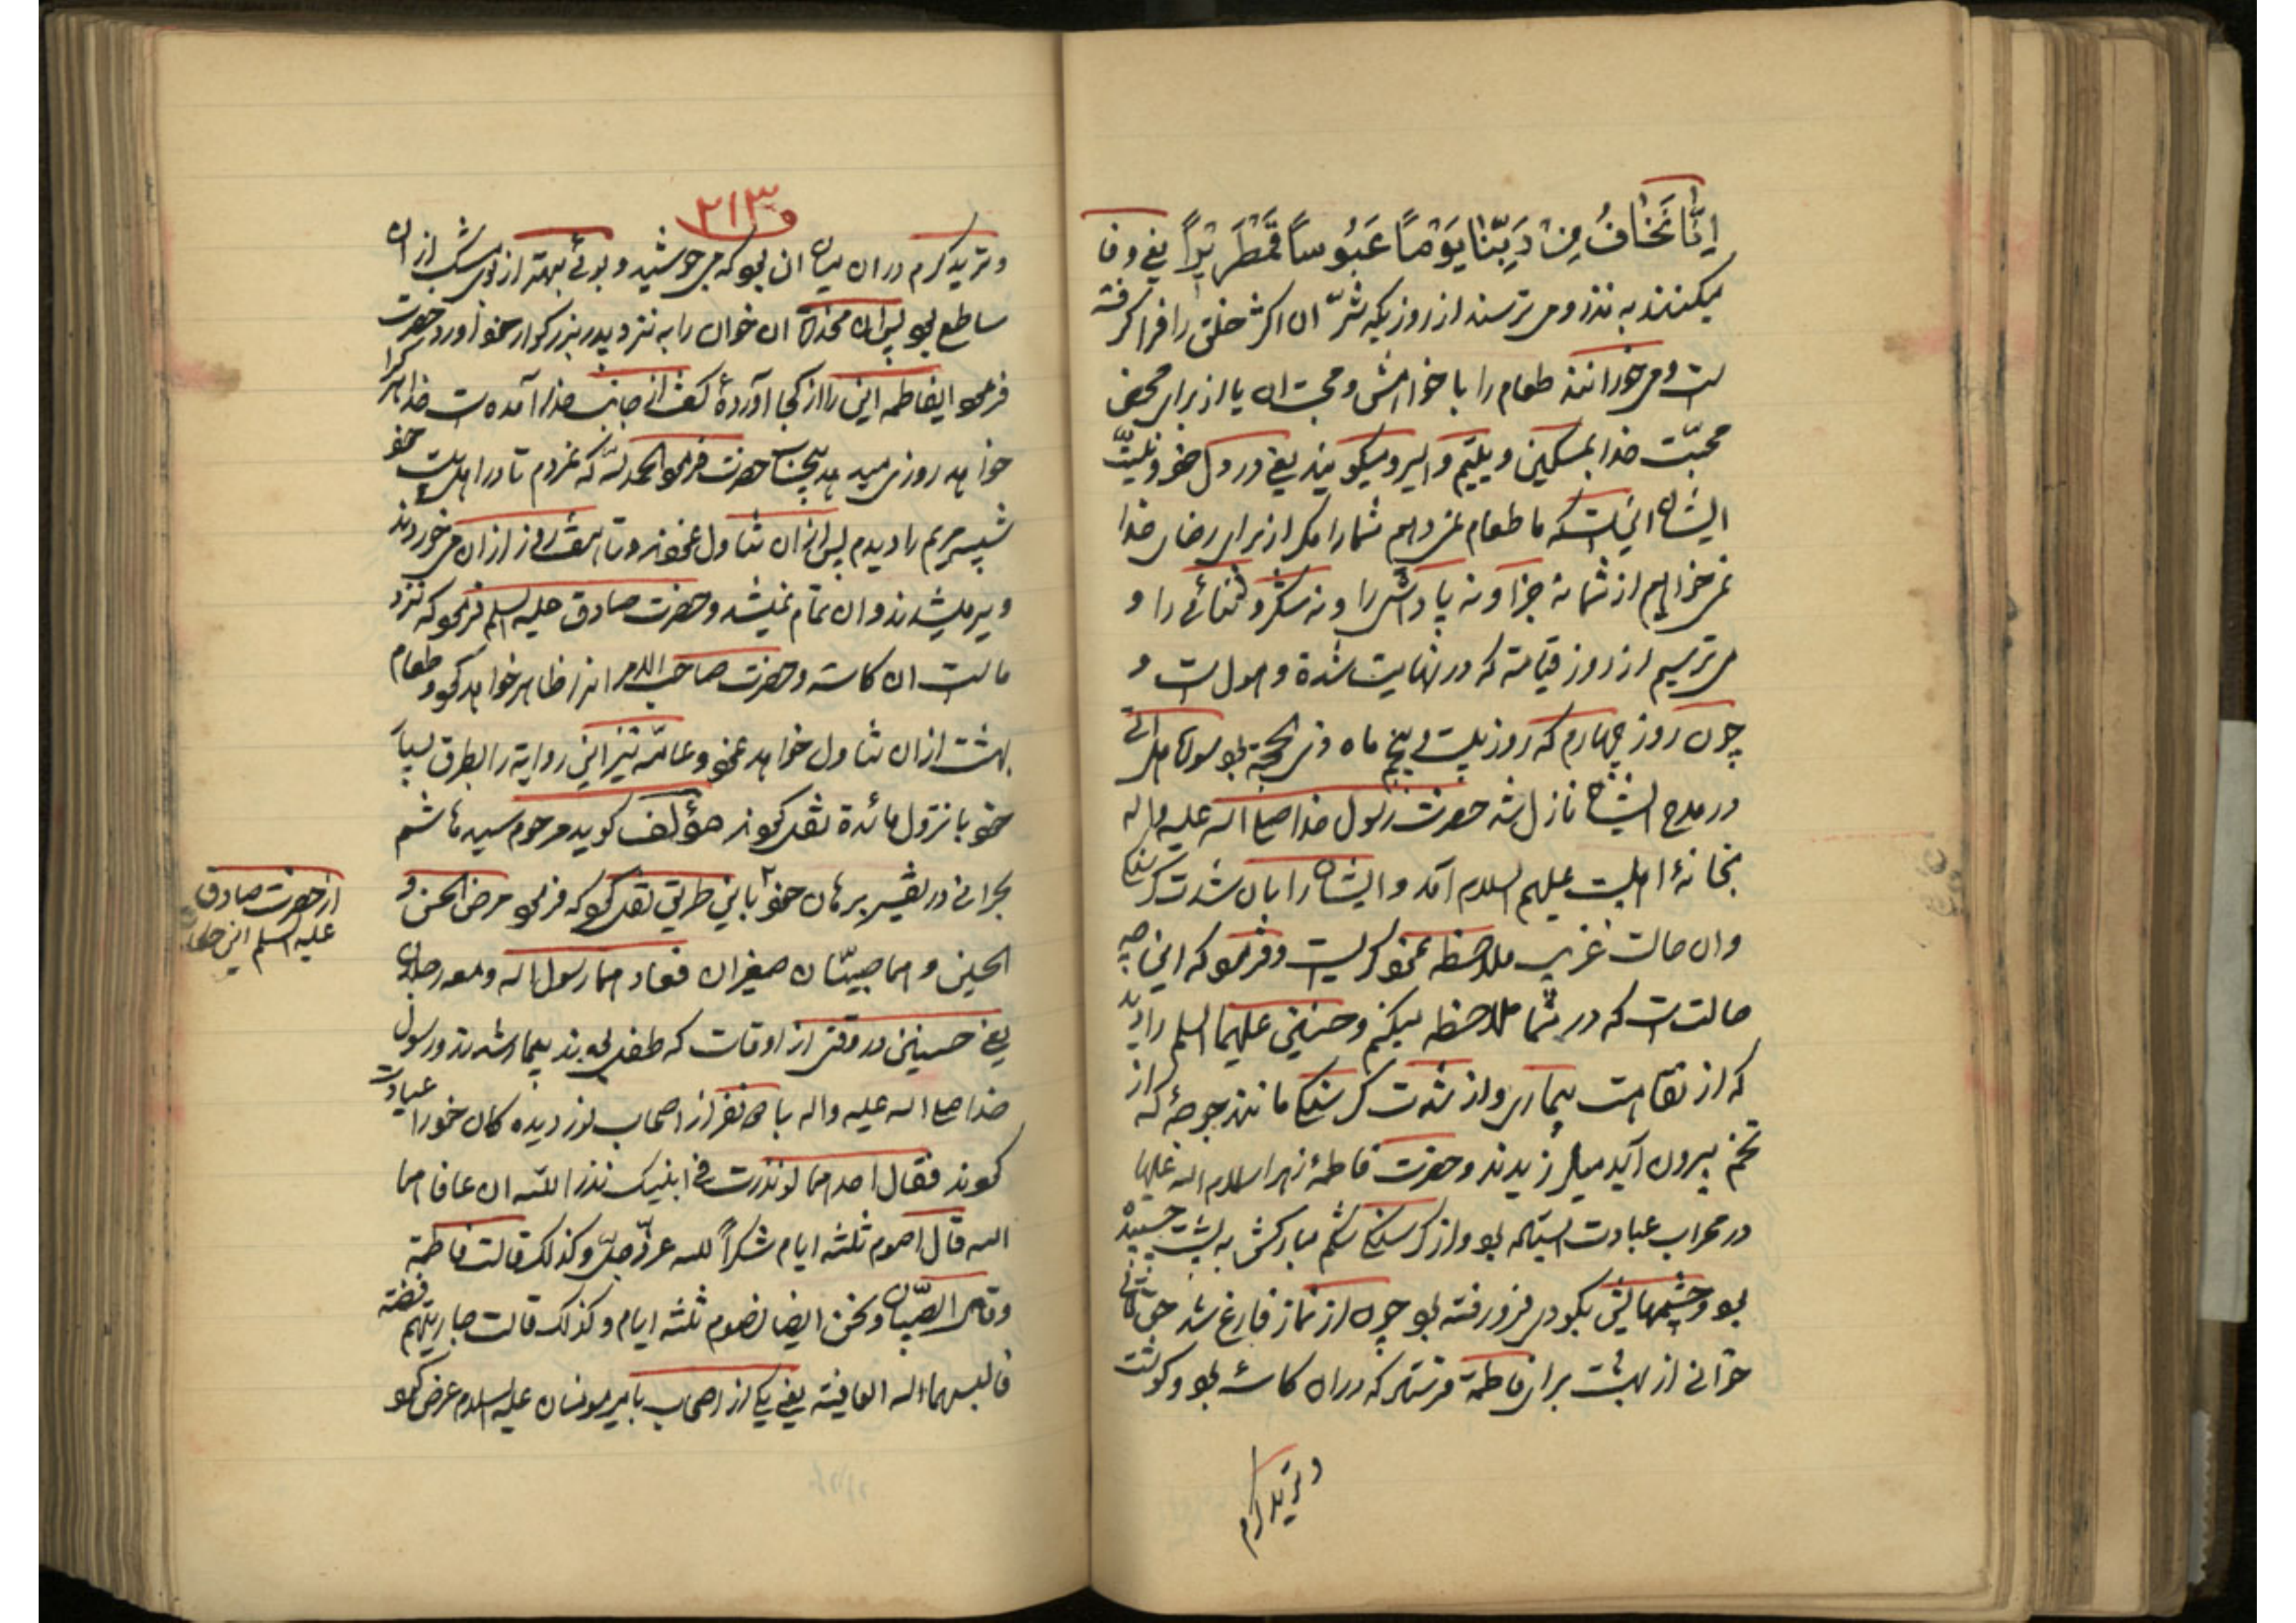 اِنَّا نَخٰافُ مِنْ رَبِّنٰا يَوْمًا عَبُوسًا قَمْطَرِيْرًا يعنى وفا
ميكنند به نذر و مى ترسند از روزيكه شرّ ان اكثر خلق را فرا كرفته
است و مى خورانند طعام را با خواهش و محبت ان يا از براى محض
محبّت خدا بمسكين و يتيم و اسير و ميكويند يعنى در دل خود و نيّت
ايشان اينست كه ما طعام نمى دهيم شما را مكر از براى رضاى خدا
نمى خواهيم از شما نه جزا و نه پاداش را و نه شكر و ثنائى را و
مى ترسيم از روز قيامة كه در نهايت شدة و هول است و
چون روز چهارم كه روز بيست و پنج ماه ذى الحجة بود سورهٔ هل اتى
در مدح ايشان نازل شد حضرت رسول خدا صلى الله عليه واله
بخانهٔ اهلبيت عليهم السلام آمد و ايشان را بان شدت كرسنكى
وان حالت غريب ملاحظه نمود كريست و فرمود كه اين چه
حالتست كه در شما ملاحظه ميكنم و حسنين عليهما السلم را ديد
كه از نقاهت بيمارى و از شدت كرسنكى مانند جوجهٔ كه از
تخم بيرون آيد ميلرزيدند و حضرت فاطمهٔ زهرا سلام الله عليها
در محراب عبادت ايستاده بود و از كرسنكى شكم مباركش به پشت چسبيده
بود و چشمهايش بكودى فرو رفته بود چون از نماز فارغ شد حقتعالى
خوانى از بهشت براى فاطمة فرستاد كه دران كاسهٔ بود و كوشت
و تريد كرم
و ٢١٣
و تريد كرم دران ميان ان بود كه مى جوشيد و بوئى بهتر از بوى مشك از ان
ساطع بود پس ان مخدرة ان خوان را به نزد پدر بزركوار خود آورد حضرت
فرمود ايفاطمه اين را از كجا آوردهٔ كفت از جانب خدا آمده است خدا هر كرا
خواهد روزى ميدهد بيحساب حضرت فرمود الحمد لله كه نمردم تا در اهلبيت خود
شبيه مريم را ديدم پس از ان تناول نمودند و تا هفت روز از ان مى خوردند
و سير ميشدند و ان تمام نميشد و حضرت صادق عليه السلم فرمود كه نزد
ماست ان كاسه و حضرت صاحب الامر انرا ظاهر خواهد كرد و طعام
بهشت از ان تناول خواهد نمود و عامّه نيز اين رواية را بطرق بسيار
خود با نزول مائدة نقل كرده‌اند مؤلف كويد مرحوم سيد هاشم
بحرانى در تفسير برهان خود باين طريق نقل كرده كه فرمود مرض الحسن و
از حضرت صادق
عليه السلم اين
الحسين و هما صبيّان صغيران فعادهما رسول الله و معه رجلان
يعنى حسنين در وقتى از اوقات كه طفل بودند بيمار شدند و رسول
خدا صلى الله عليه واله با دو نفر از اصحاب نور ديده كان خود را عيادت
كردند فقال احدهما لو نذرت فى ابنيك نذرا لله ان عافاهما
الله قال اصوم ثلثه ايام شكراً لله عزّ وجلّ و كذلك قالت فاطمة
و قال الصبيّان و نحن ايضا نصوم ثلثه ايام و كذلك قالت جاريتهم فضّه
فالبسهما الله العافيته يعنى يكى از اصحاب باميرمومنان عليه السلام عرض كرد